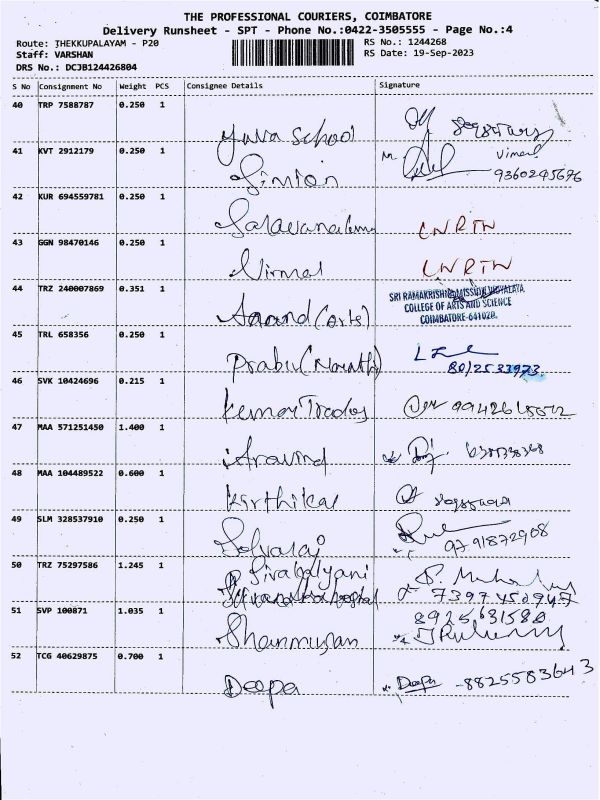 THE PROFESSIONAL COURIERS, COIMBATORE
Delivery Runsheet - SPT - Phone No.:0422-3505555 - Page No.:4
Route: THEKKUPALAYAM - P20
RS No.: 1244268
Staff: VARSHAN
RS Date: 19-Sep-2023
DRS No.: DCJB124426804
S No Consignment No Weight PCS Consignee Details Signature
40 TRP 7588787 0.250 1
Yuva School
41 KVT 2912179 0.250 1
Simion Vimal
9360245676
42 KUR 694559781 0.250 1
CNRTN
43 GGN 98470146 0.250 1
Nirmal CNRTN
44 TRZ 240007869 0.351 1
SRI RAMAKRISHNA MISSION VIDYALAYA
COLLEGE OF ARTS AND SCIENCE
Anand (Arts) COIMBATORE-641020.
45 TRL 658356 0.250 1
Prabu
46 SVK 10424696 0.215 1
Kumar Trades
47 MAA 571251450 1.400 1
Aravind
48 MAA 104489522 0.600 1
Kirthika
49 SLM 328537910 0.250 1
Selvaraj 9791872908
50 TRZ 75297586 1.245 1
Sivakalyani
7397450947
51 SVP 100871 1.035 1
8925681580
Shanmugan
52 TCG 40629875 0.700 1
Deepa Deepa - 8825583643